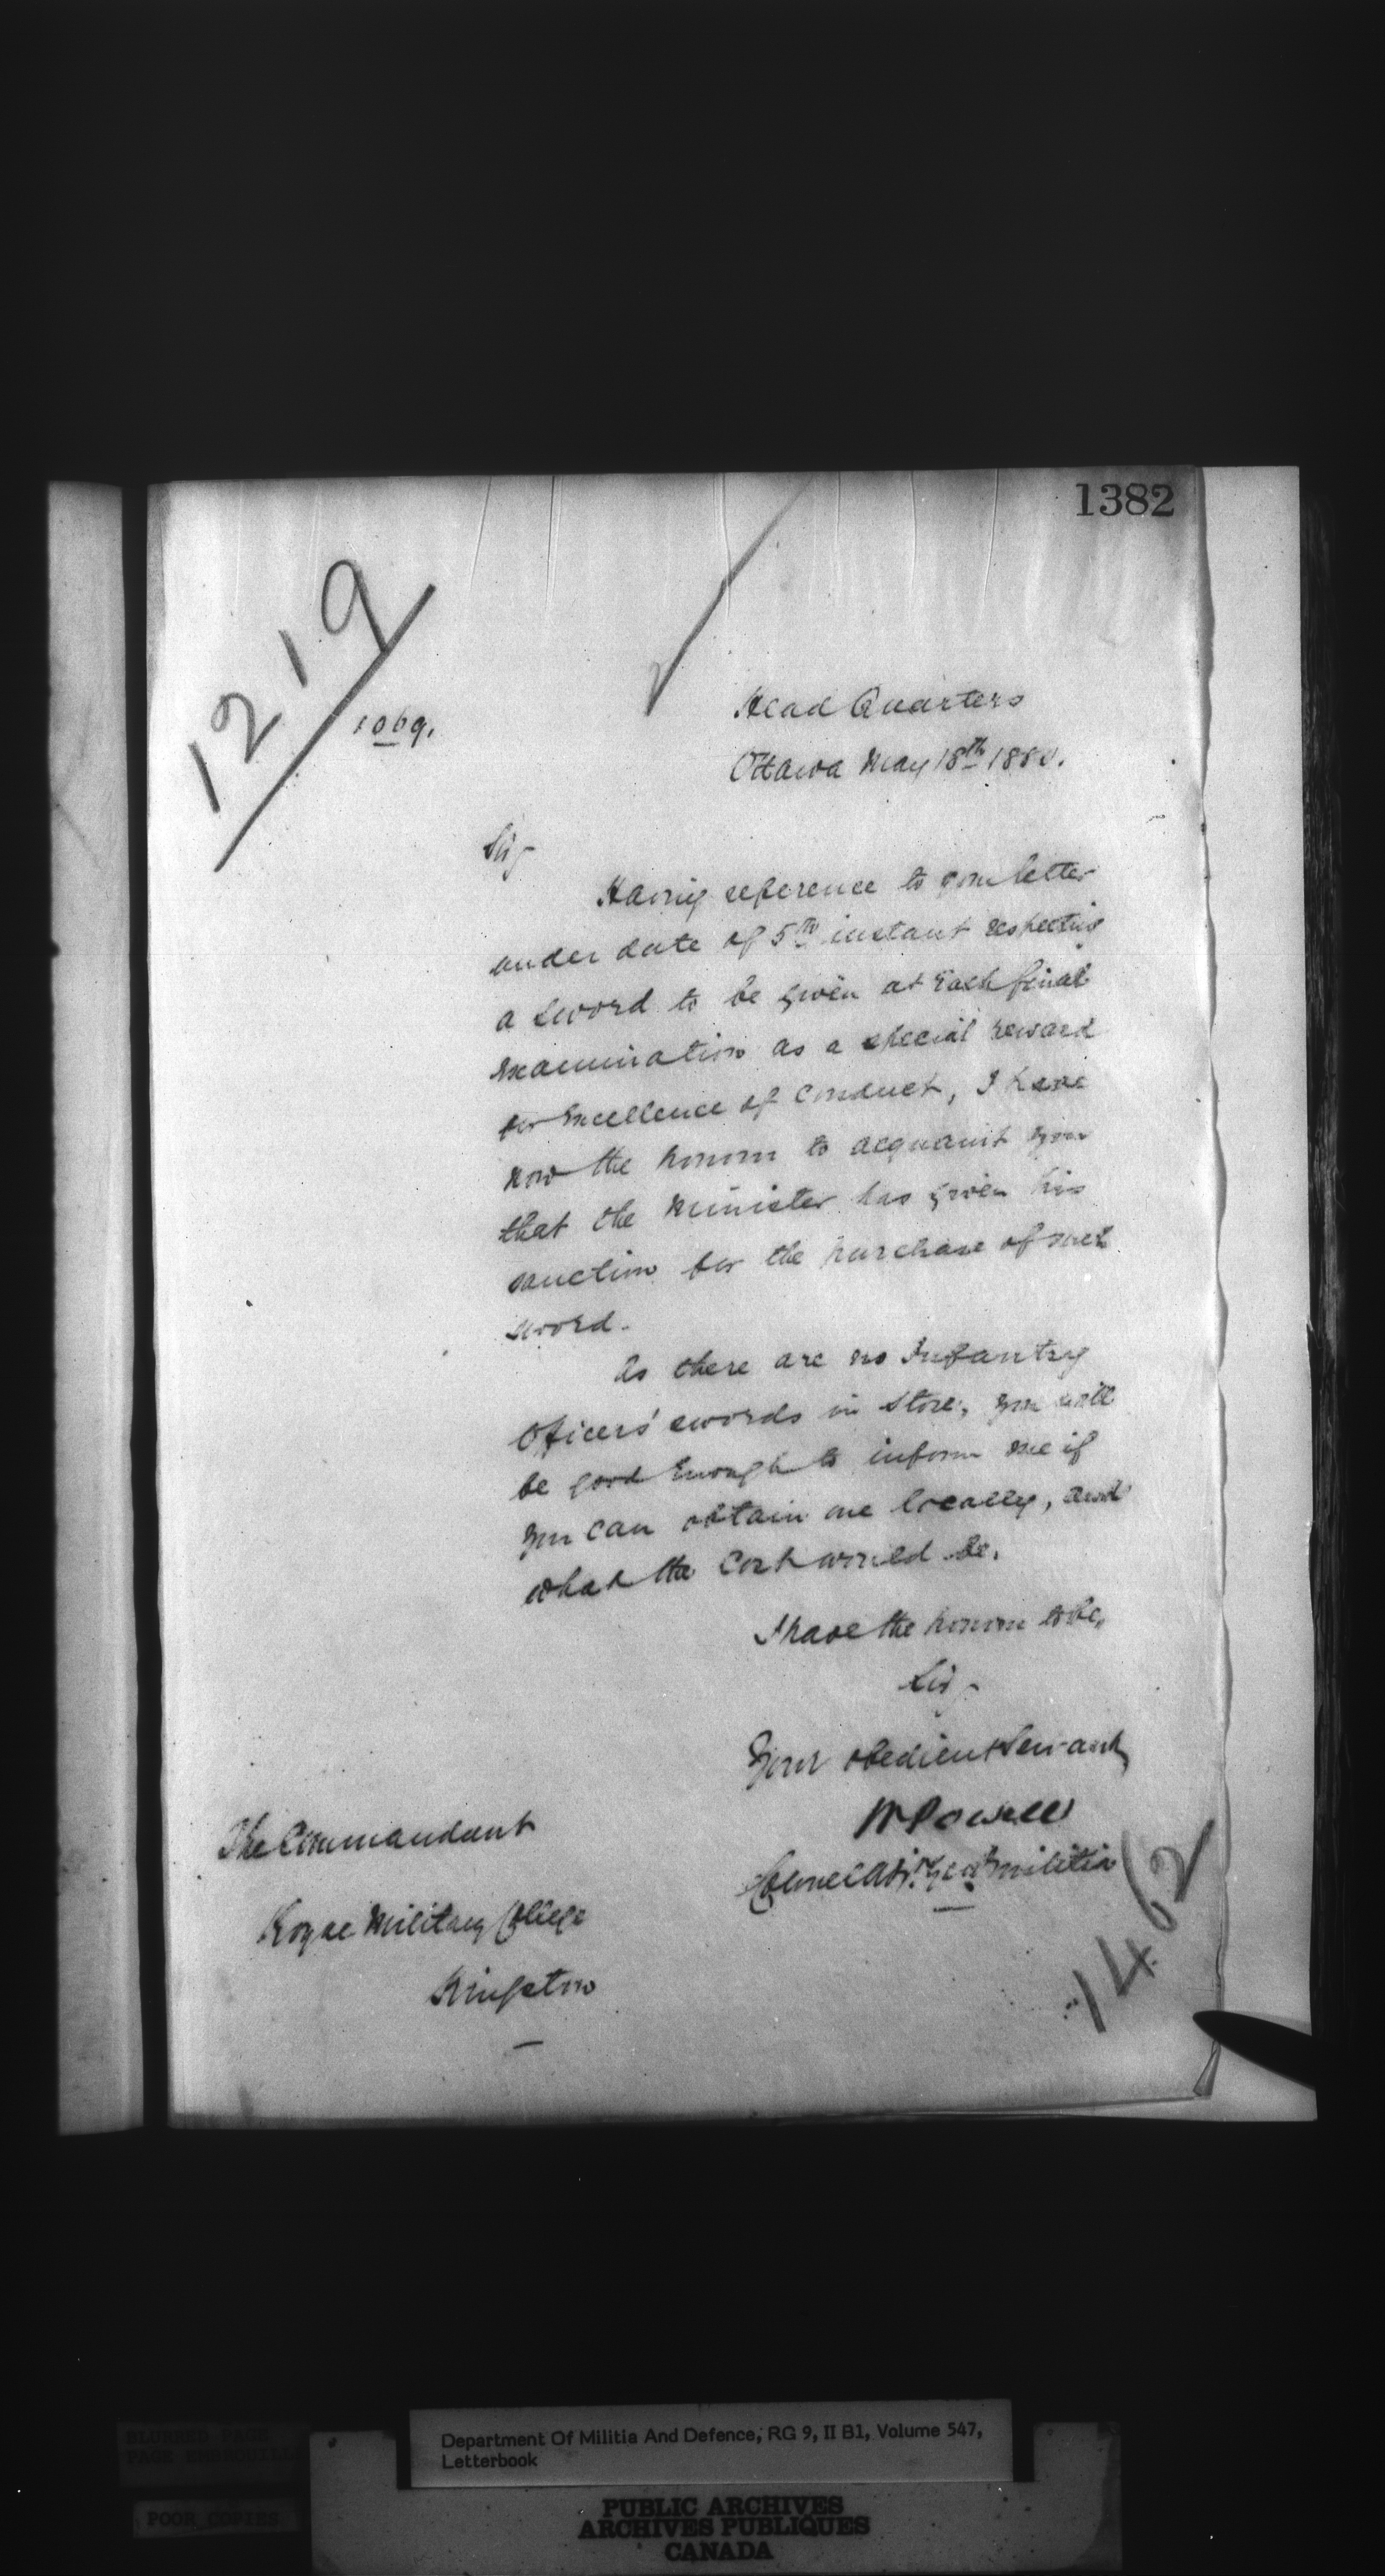 1382
1219
1069.
Head Quarters
Ottawa May 18th 1880.
Sir,
Having reference to your letter
under date of 5th instant respecting
a sword to be given at Each final
Examination as a special reward
for Excellence of Conduct, I have
now the honour to acquaint you
that the Minister has given his
sanction for the purchase of such
sword.
As there are no Infantry
Officers' swords in Store, you will
be good Enough to inform me if
you can obtain one locally, and
what the Cost would be.
I have the honour to be,
Sir,
Your obedient Servant,
W Powell
Colonel Adjt. Genl Militia
The Commandant
Royal Military College
Kingston
1462
Department Of Militia And Defence, RG 9, II B1, Volume 547,
Letterbook
BLURRED PAGE
POOR COPIES
PUBLIC ARCHIVES
ARCHIVES PUBLIQUES
CANADA